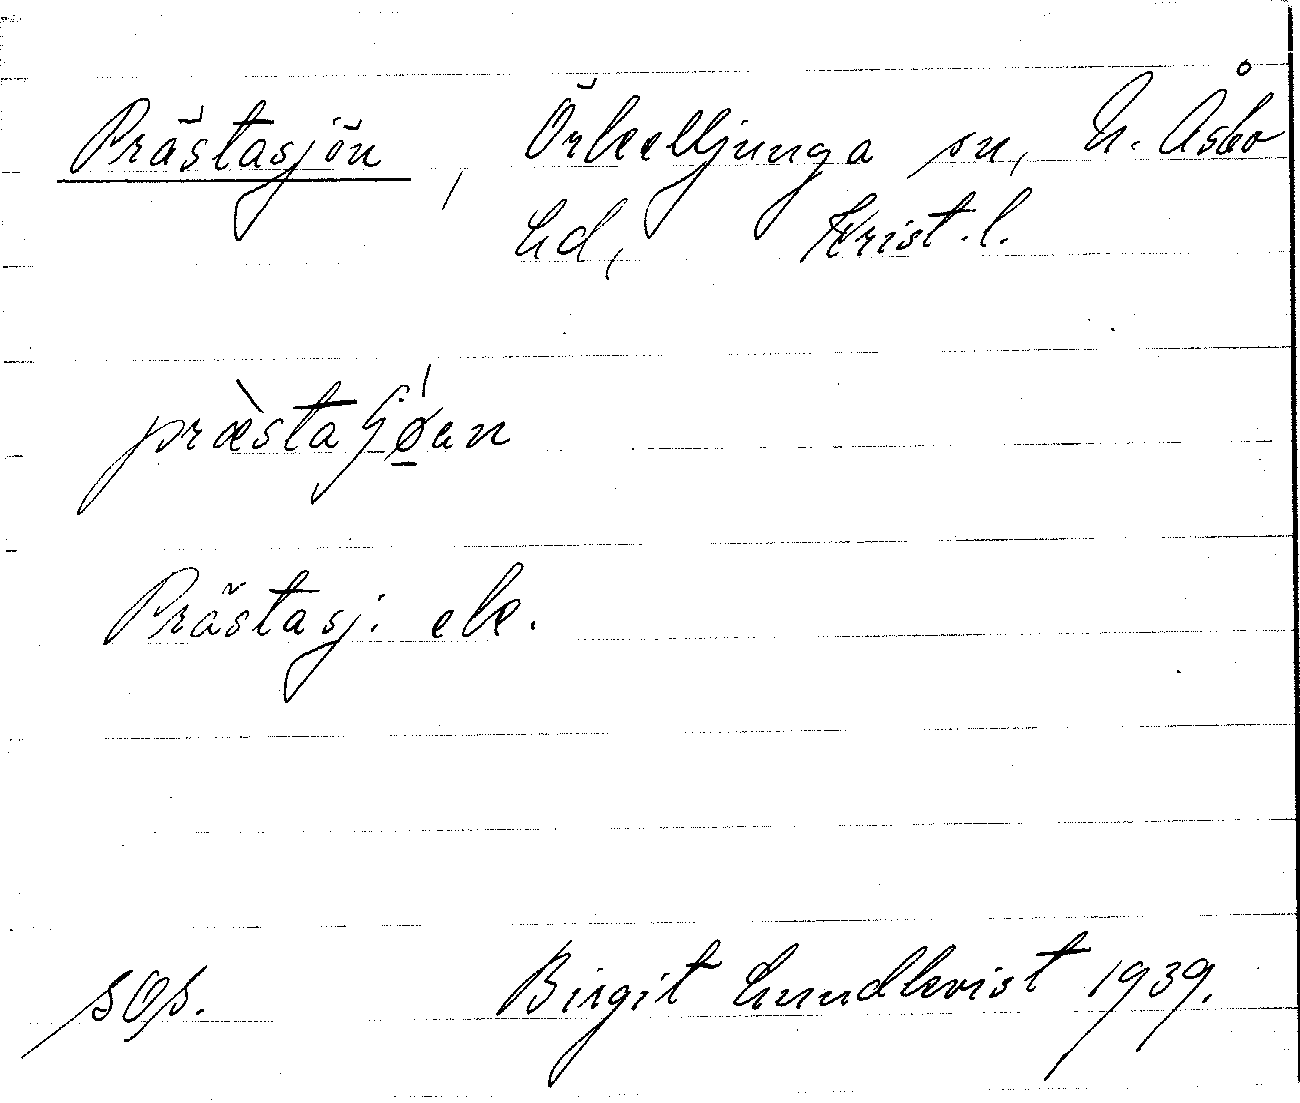 Prästasjön, Örkelljunga sn, N. Åsbo
hd, Krist. l.
præ̀staʃǿ̱en
Prästasj. ek.
sOs. Birgit Lundkvist 1939.